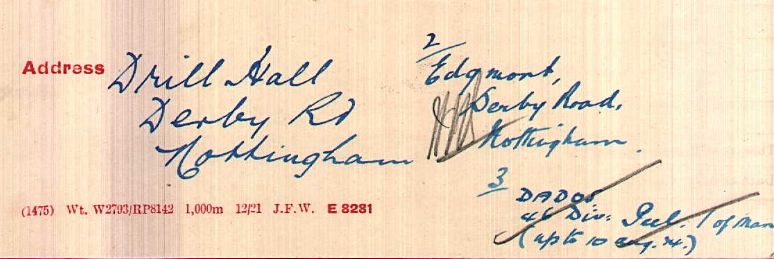 Address Drill Hall
Derby Rd
Nottingham
2
Edgmont,
Derby Road,
Nottingham.
3
DADOS
46 Div:
(up to 10 Aug. 24.)
(1475) Wt. W2793/RP8142 1,000m 12/21 J.F.W. E 8281